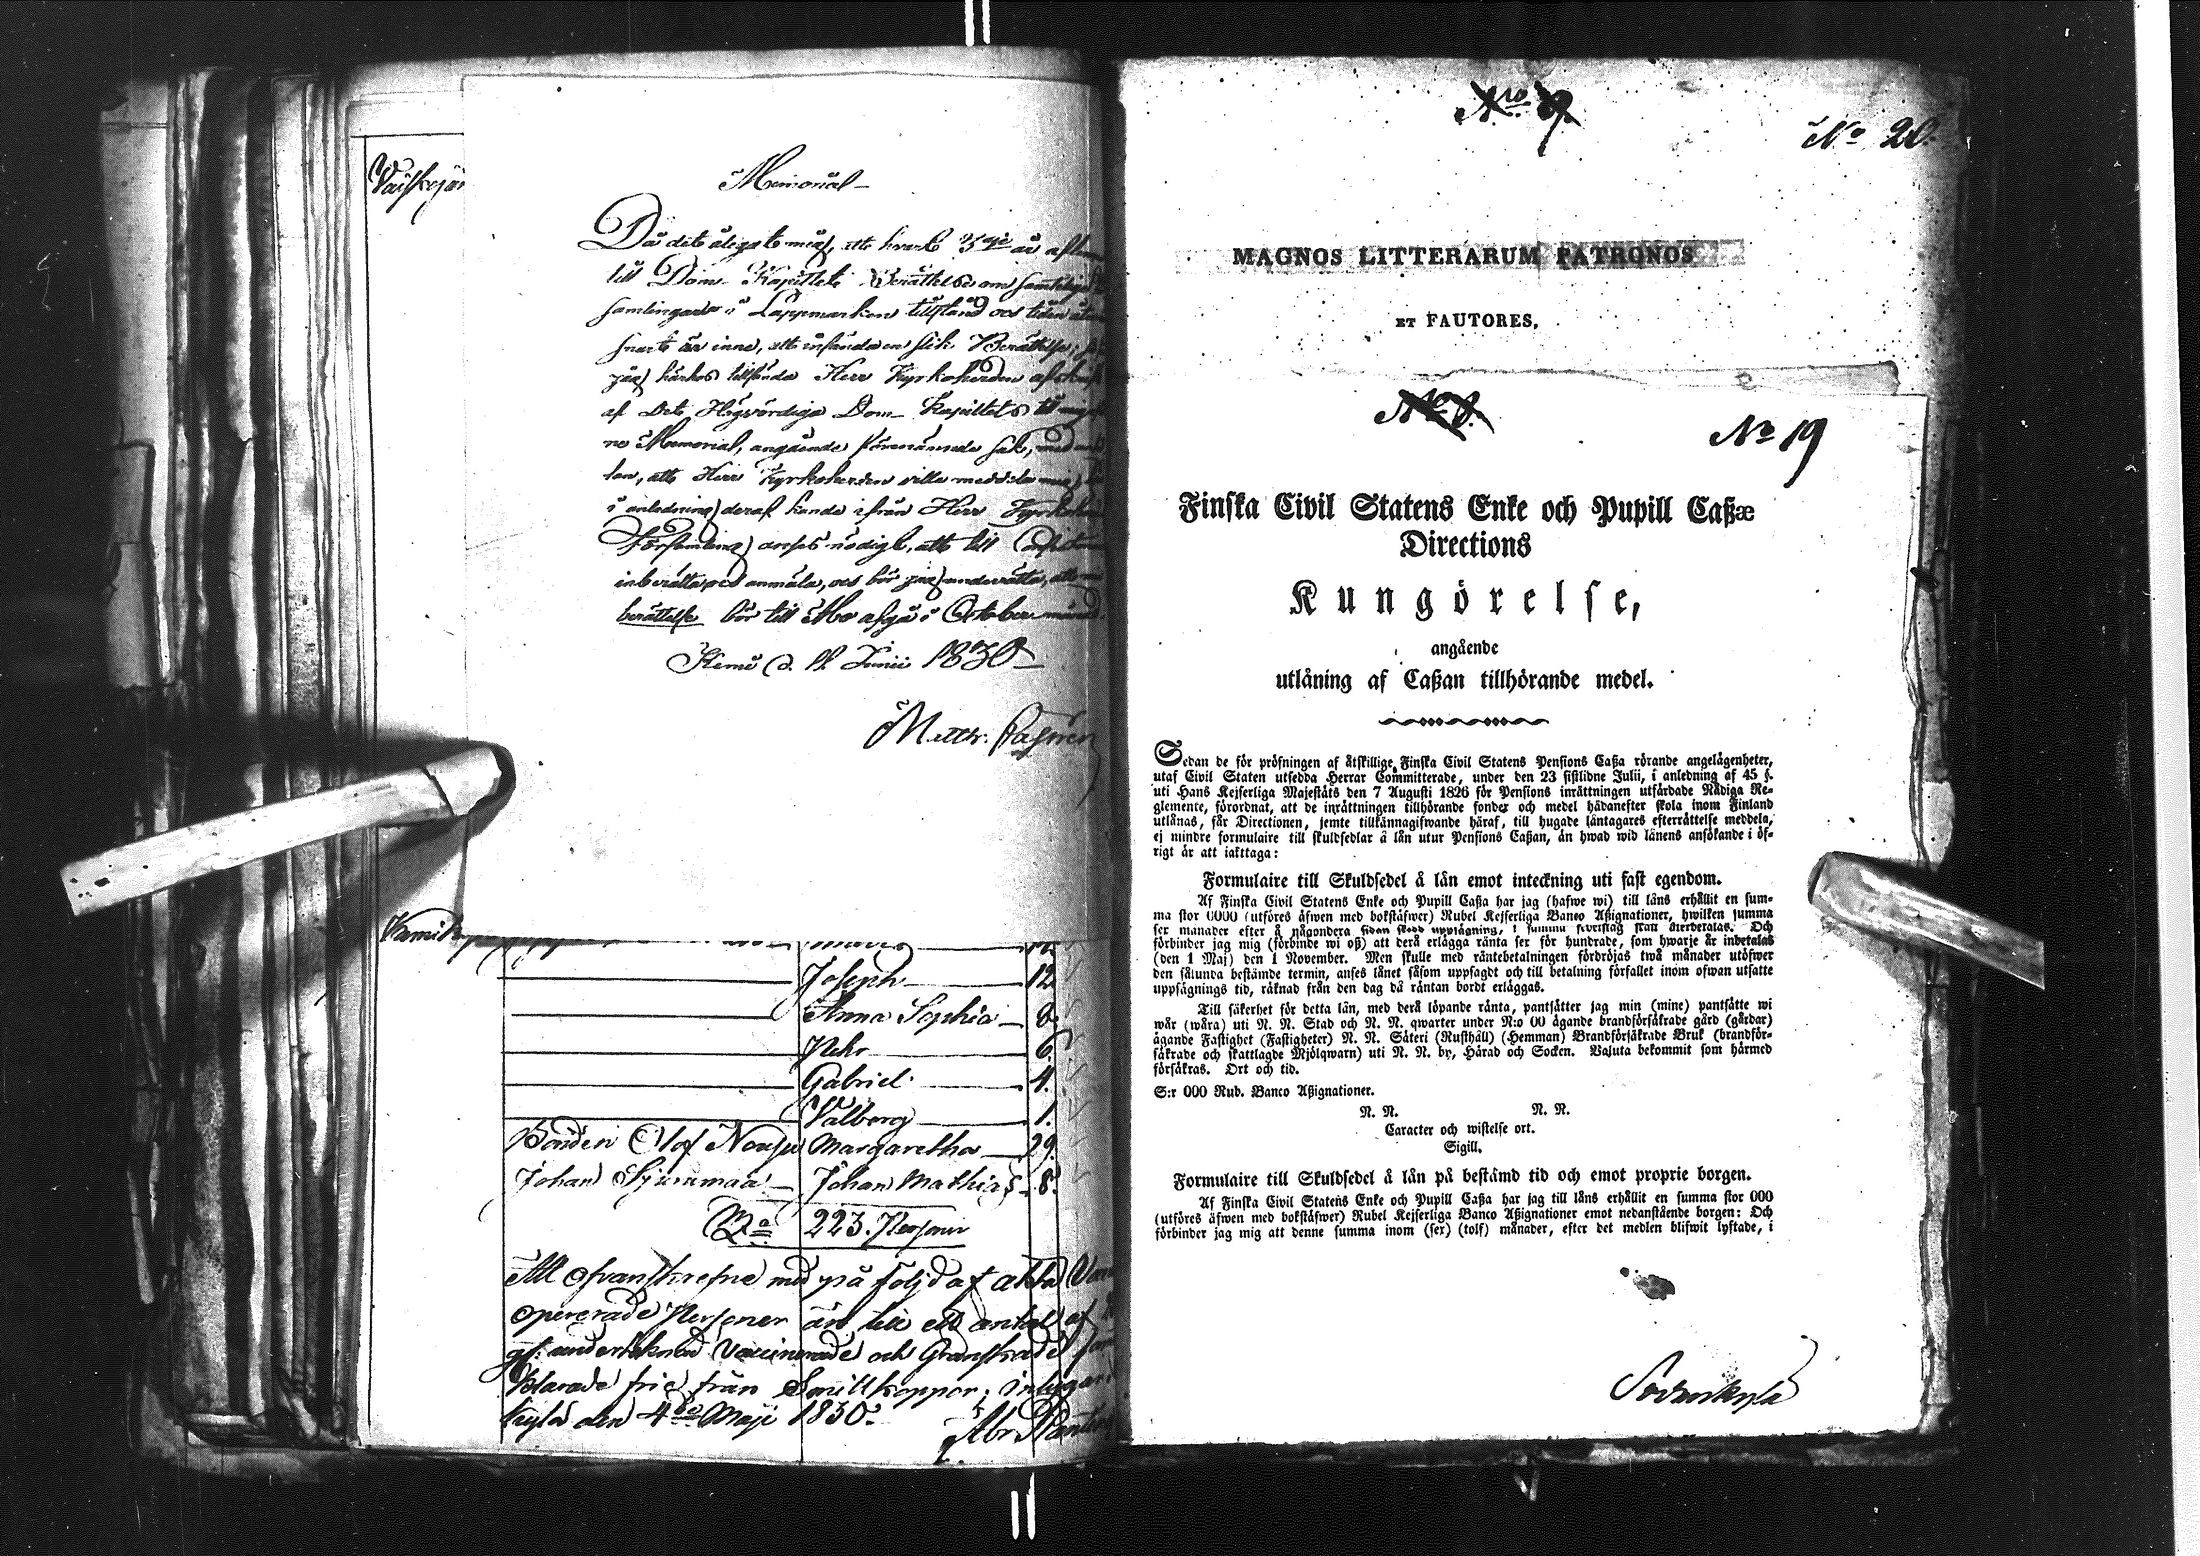 Memorial
Då det åligger mig, att hvart 3dje år
till Dom Kapitlet Berättelse om samtelige
samlingars i Lappmarken tillstånd och tiden
snart är inne, att insända en slik Berättelse;
jag härhos tillsända Herr Kyrkoherden
af Det Högvördiga Dom Kapitlets
ne Memorial, angående förenämnde sak,
tan, att Herr Kyrkoherden ville meddela mig
i anledning deraf kunde ifrån Herr
Församling anses nödigt, att till
inberätta och anmäla, och bör jag underrätta,
berättelse bör till Åbo afgå i October månad.
Kemi d. 11 Junii 1830
Matth. Castrén
Joseph 12
Anna Sophia 8
Pehr 6.
Gabriel 4.
Valborg 1.
Bonden Olof Margaretha 29.
Johan Johan Mathias 8.
223. Personer
Att ofvanskrefne med på följd af äkta
opererade Personer än till ett antal af
undertecknad Vaccinerade och Granskade
klarade frie från Smittkoppor;
kylä den 4de Maji 1830.
Nro 9.
No 20.
MAGNOS LITTERARUM PATRONOS
ET FAUTORES.
No 19
Finska Civil Statens Enke och Pupill Caßæ
Directions
Kungörelse,
angående
utlåning af Caßan tillhörande medel.
Sedan de för pröfningen af åtskillige, Finska Civil Statens Pensions Caßa rörande angelägenheter,
utaf Civil Staten utsedda Herrar Committerade, under den 23 sistlidne Julii, i anledning af 45 §.
uti Hans Kejserliga Majestäts den 7 Augusti 1826 för Pensions inrättningen utfärdade Nådiga Re-
glemente, förordnat, att de inrättningen tillhörande fonder och medel hädanefter skola inom Finland
utlånas, får Directionen, jemte tillkännagifwande häraf, till hugade låntagares efterrättelse meddela,
ej mindre formulaire till skuldsedlar å lån utur Pensions Caßan, än hwad wid lånens ansökande i öf-
rigt är att iakttaga:
Formulaire till Skuldsedel å lån emot inteckning uti fast egendom.
Af Finska Civil Statens Enke och Pupill Caßa har jag (hafwe wi) till låns erhållit en sum-
ma stor 0000 (utföres äfwen med bokstäfwer) Rubel Kejserliga Banco Aßignationer, hwilken summa
sex månader efter å någondera sidan skedd uppsägning, i summa silfverslag skall återbetalas. Och
förbinder jag mig (förbinde wi oß) att derå erlägga ränta sex för hundrade, som hwarje år inbetalas
(den 1 Maj) den 1 November. Men skulle med räntebetalningen fördröjas twå månader utöfwer
den sålunda bestämde termin, anses lånet såsom uppsagdt och till betalning förfallet inom ofwan utsatte
uppsägnings tid, räknad från den dag då räntan bordt erläggas.
Till säkerhet för detta lån, med derå löpande ränta, pantsätter jag min (mine) pantsätte wi
wår (wåra) uti N. N. Stad och N. N. qwarter under N:o 00 ägande brandförsäkrade gård (gårdar)
ägande Fastighet (Fastigheter) N. N. Säteri (Rusthåll) (Hemman) Brandförsäkrade Bruk (brandför-
säkrade och skattlagde Mjölqwarn) uti N. N. by, Härad och Socken. Valuta bekommit som härmed
försäkras. Ort och tid.
S:r 000 Rub. Banco Aßignationer.
N. N. N. N.
Caracter och wistelse ort.
Sigill.
Formulaire till Skuldsedel å lån på bestämd tid och emot proprie borgen.
Af Finska Civil Statens Enke och Pupill Caßa har jag till låns erhållit en summa stor 000
(utföres äfwen med bokstäfwer) Rubel Kejserliga Banco Aßignationer emot nedanstående borgen: Och
förbinder jag mig att denne summa inom (sex) (tolf) månader, efter det medlen blifwit lyftade, i
Sodankylä